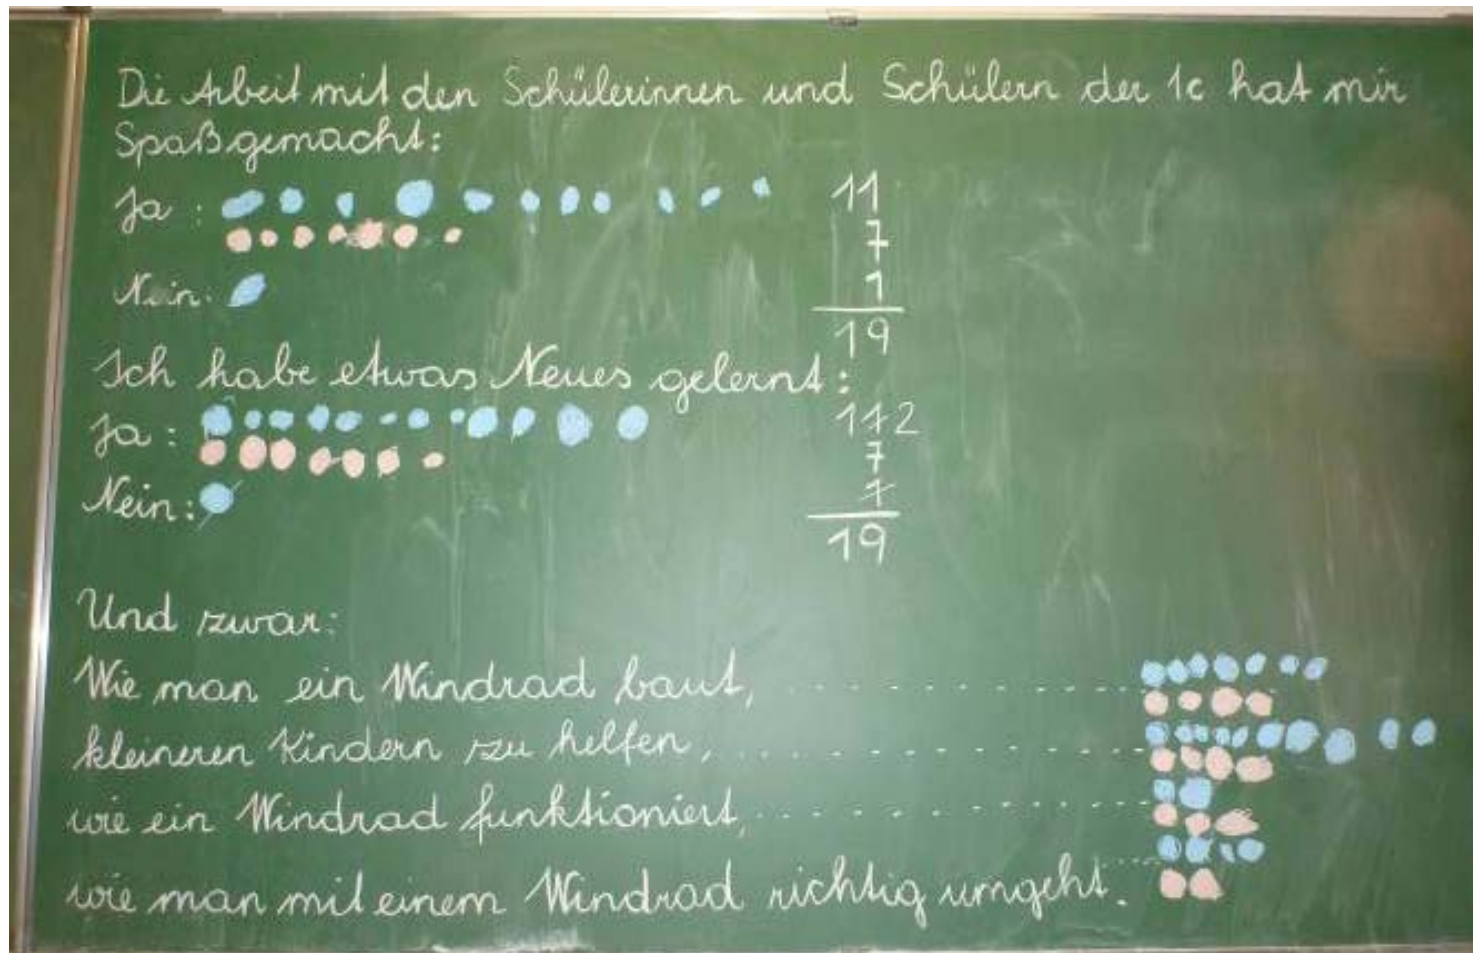 Die Arbeit mit den Schülerinnen und Schülern der 1c hat mir
Spaß gemacht:
Ja : 11
7
Nein: 1
19
Ich habe etwas Neues gelernt:
Ja : 112
7
Nein: 1
19
Und zwar:
Wie man ein Windrad baut,
kleineren Kindern zu helfen,
wie ein Windrad funktioniert,
wie man mit einem Windrad richtig umgeht.